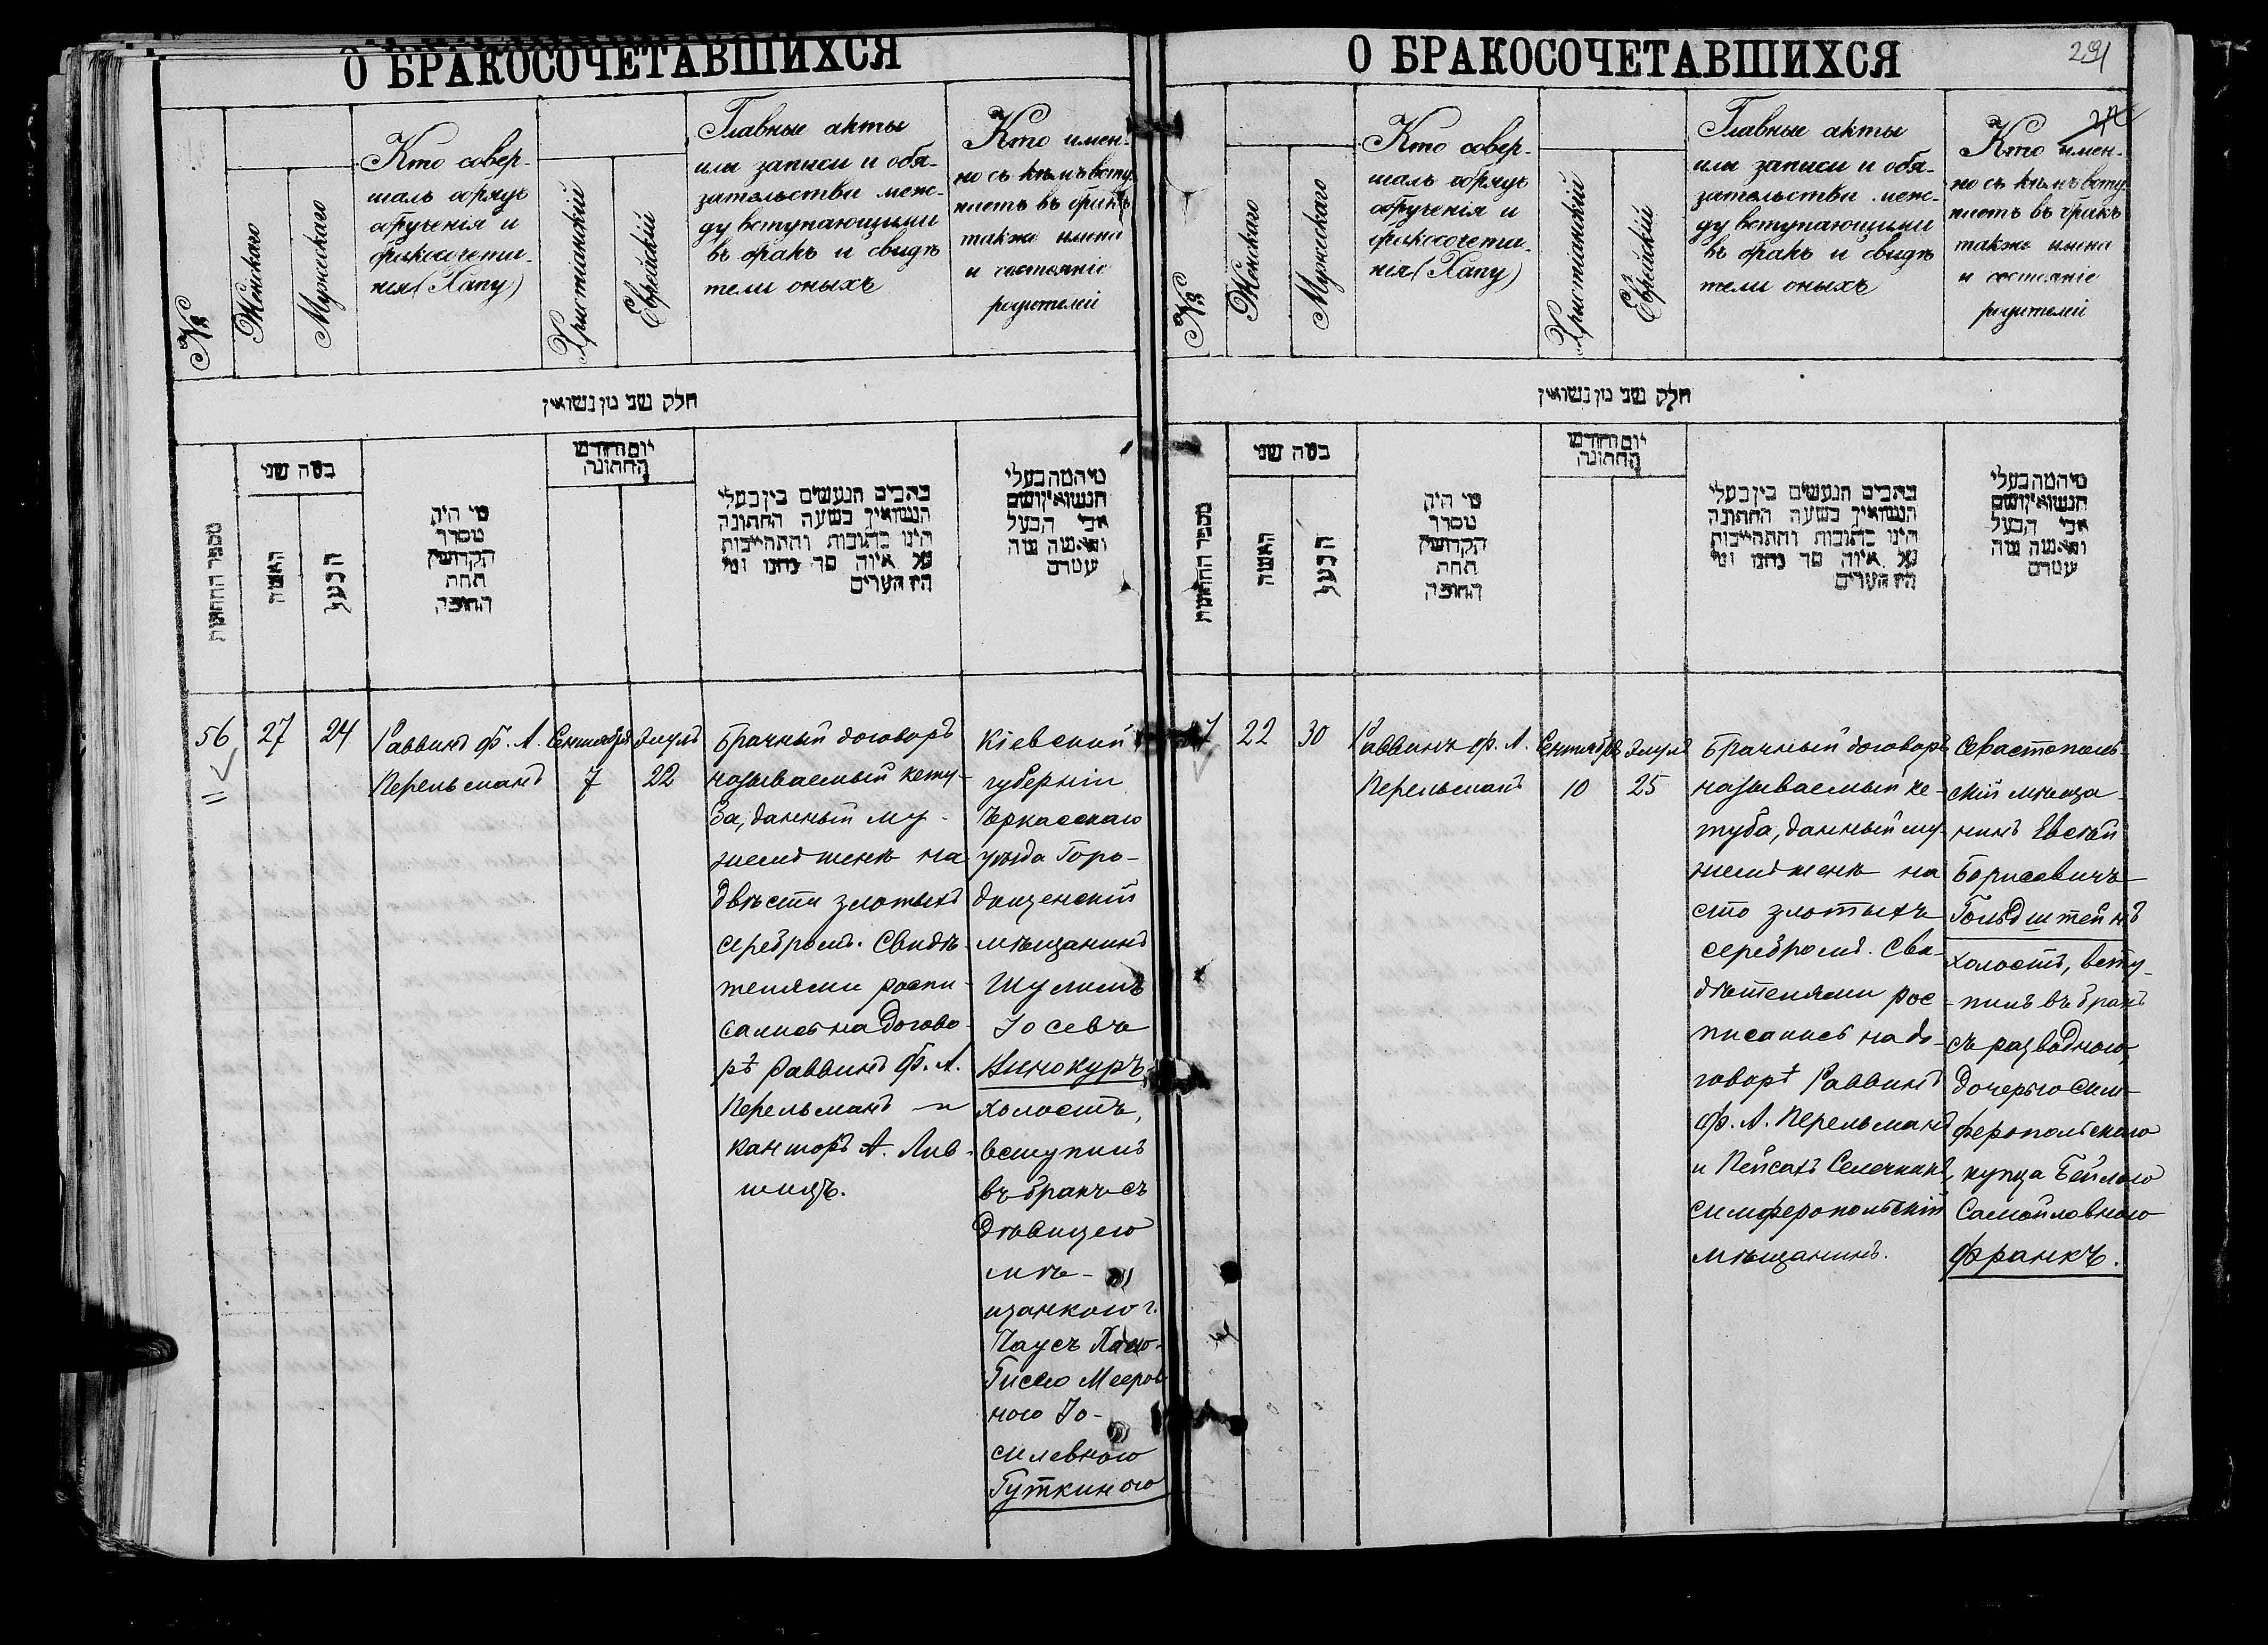 О БРАКОСОЧЕТАВШИХСЯ
№
Женскаго
Мужескаго
Кто совер-
шалъ обрядъ
обрученія и
бракосочета-
нія (Хапу)
Христіанскій
Еврейскій
Главные акты
или записи и обя-
зательства меж-
ду вступающими
въ бракъ и свидѣ
тели оныхъ
Кто имен-
но съ кѣмъ всту
паетъ въ бракъ
также имена
и состояніе
родителей
חלק שני מן נשואין
מספר החתונות
בטה שני
האשה
הבעל
מי היה
מסדר
הקדושין
תחת
החופה
יום וחדש
החתונה
כתבים הנעשים בין בעלי
הנשואין בשעה החתונה
היינו כתובות והתחייבות
על איזה סך נתנו ומי
היו העדים
מי המה בעלי
הנשואין ושם
אבי הבעל
והאשה
56
27
24
Раввинъ Ф. А.
Перельманъ
Сентября
7
Элулъ
22
Брачный договоръ
называемый кету-
ба, данный му-
жемъ женѣ на
двѣсти злотыхъ
серебромъ. Свидѣ-
телями распи-
сались на догово-
рѣ Раввинъ Ф. А.
Перельманъ и
канторъ А. Лив-
шицъ.
Кіевской
губерніи
Черкасскаго
уѣзда Горо-
дищенскій
мѣщанинъ
Шулимъ
Іосевъ
Винокуръ
холостъ,
вступилъ
въ бракъ съ
дѣвицею
мѣ-
щанкою г.
Гиссею Мееров
ною Іо-
силевною
Гуткиною
О БРАКОСОЧЕТАВШИХСЯ
291
№
Женскаго
Мужескаго
Кто совер-
шалъ обрядъ
обрученія и
бракосочета-
нія (Хапу)
Христіанскій
Еврейскій
Главные акты
или записи и обя-
зательства меж-
ду вступающими
въ бракъ и свидѣ
тели оныхъ
Кто имен-
но съ кѣмъ всту
паетъ въ бракъ
также имена
и состояніе
родителей
חלק שני מן נשואין
מספר החתונות
בטה שני
האשה
הבעל
מי היה
מסדר
הקדושין
תחת
החופה
יום וחדש
החתונה
כתבים הנעשים בין בעלי
הנשואין בשעה החתונה
היינו כתובות והתחייבות
על איזה סך נתנו ומי
היו העדים
מי המה בעלי
הנשואין ושם
אבי הבעל
והאשה
7
22
30
Раввинъ Ф. А.
Перельманъ
Сентября
10
Элулъ
25
Брачный договоръ
называемый ке-
туба, данный му-
жемъ женѣ на
сто злотыхъ
серебромъ. Сви-
дѣтелями рос-
писались на до-
говорѣ Раввинъ
Ф. А. Перельманъ
и Пейсахъ
симферопольскій
мѣщанинъ.
Севастополь-
скій мѣща-
нинъ Евсѣй
Борисовичъ
Гольдштейнъ
холостъ, всту-
пилъ въ бракъ
съ разводною
дочерью Сим-
феропольскаго
купца Бейлою
Самойловною
Франкъ.